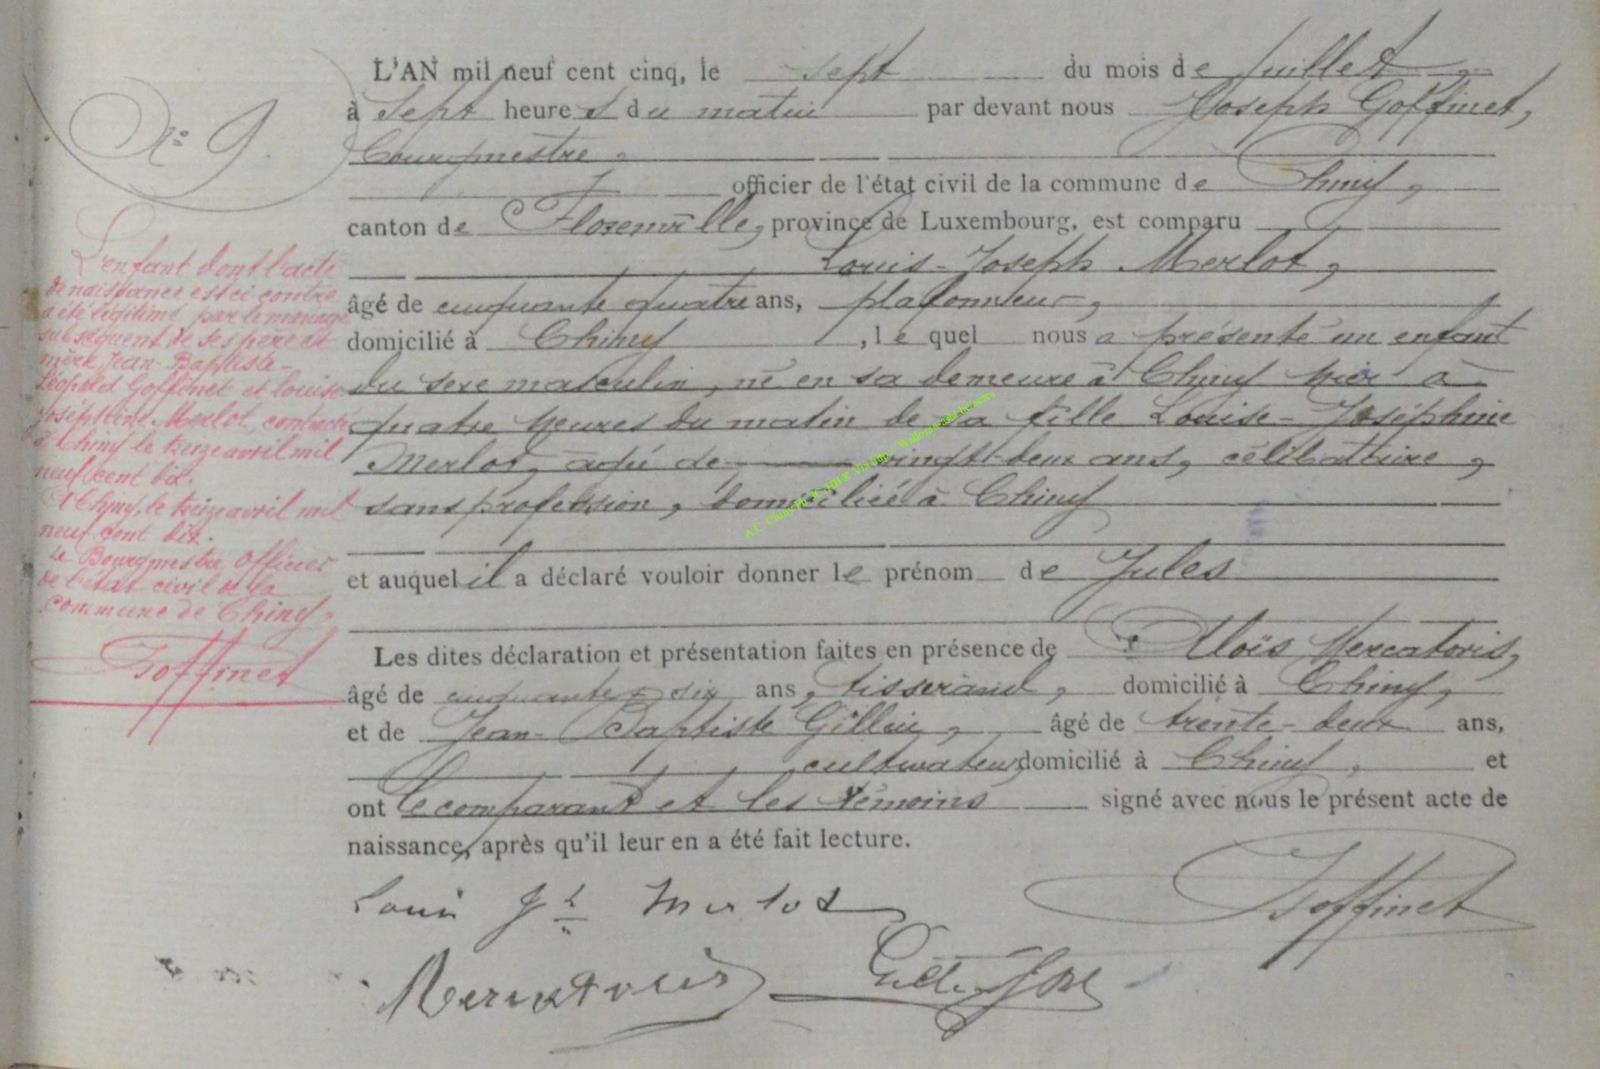 N° 9
L'AN mil neuf cent cinq, le sept du mois de juillet,
à sept heures du matin par devant nous Joseph Goffinet,
bourgmestre,
officier de l'état civil de la commune de Chiny,
canton de Florenville, province de Luxembourg, est comparu
Louis-Joseph Merlot,
âgé de cinquante quatre ans, plafonneur,
domicilié à Chiny, lequel nous a présenté un enfant
du sexe masculin, né en sa demeure à Chiny hier à
quatre heures du matin de sa fille Louise-Joséphine
Merlot, agée de vingt-deux ans, célibataire,
sans profession, domiciliée à Chiny
et auquel il a déclaré vouloir donner le prénom de Jules
Les dites déclaration et présentation faites en présence de Aloïs Mercatoris,
âgé de cinquante-six ans, tisserand, domicilié à Chiny,
et de Jean-Baptiste Gillin, âgé de trente-deux ans,
cultivateur, domicilié à Chiny, et
ont le comparant et les témoins signé avec nous le présent acte de
naissance, après qu'il leur en a été fait lecture.
Louis Jh Merlot
Goffinet
Mercatoris
L'enfant dont l'acte
de naissance est ci contre
a été légitimé par le mariage
subséquent de ses père et
mère Jean-Baptiste-
Léopold Goffinet et Louise
Joséphine Merlot, contracté
à Chiny le treize avril mil
neuf cent dix.
A Chiny, le treize avril mil
neuf cent dix.
Le Bourgmestre Officier
de l'état civil de la
commune de Chiny,
Goffinet